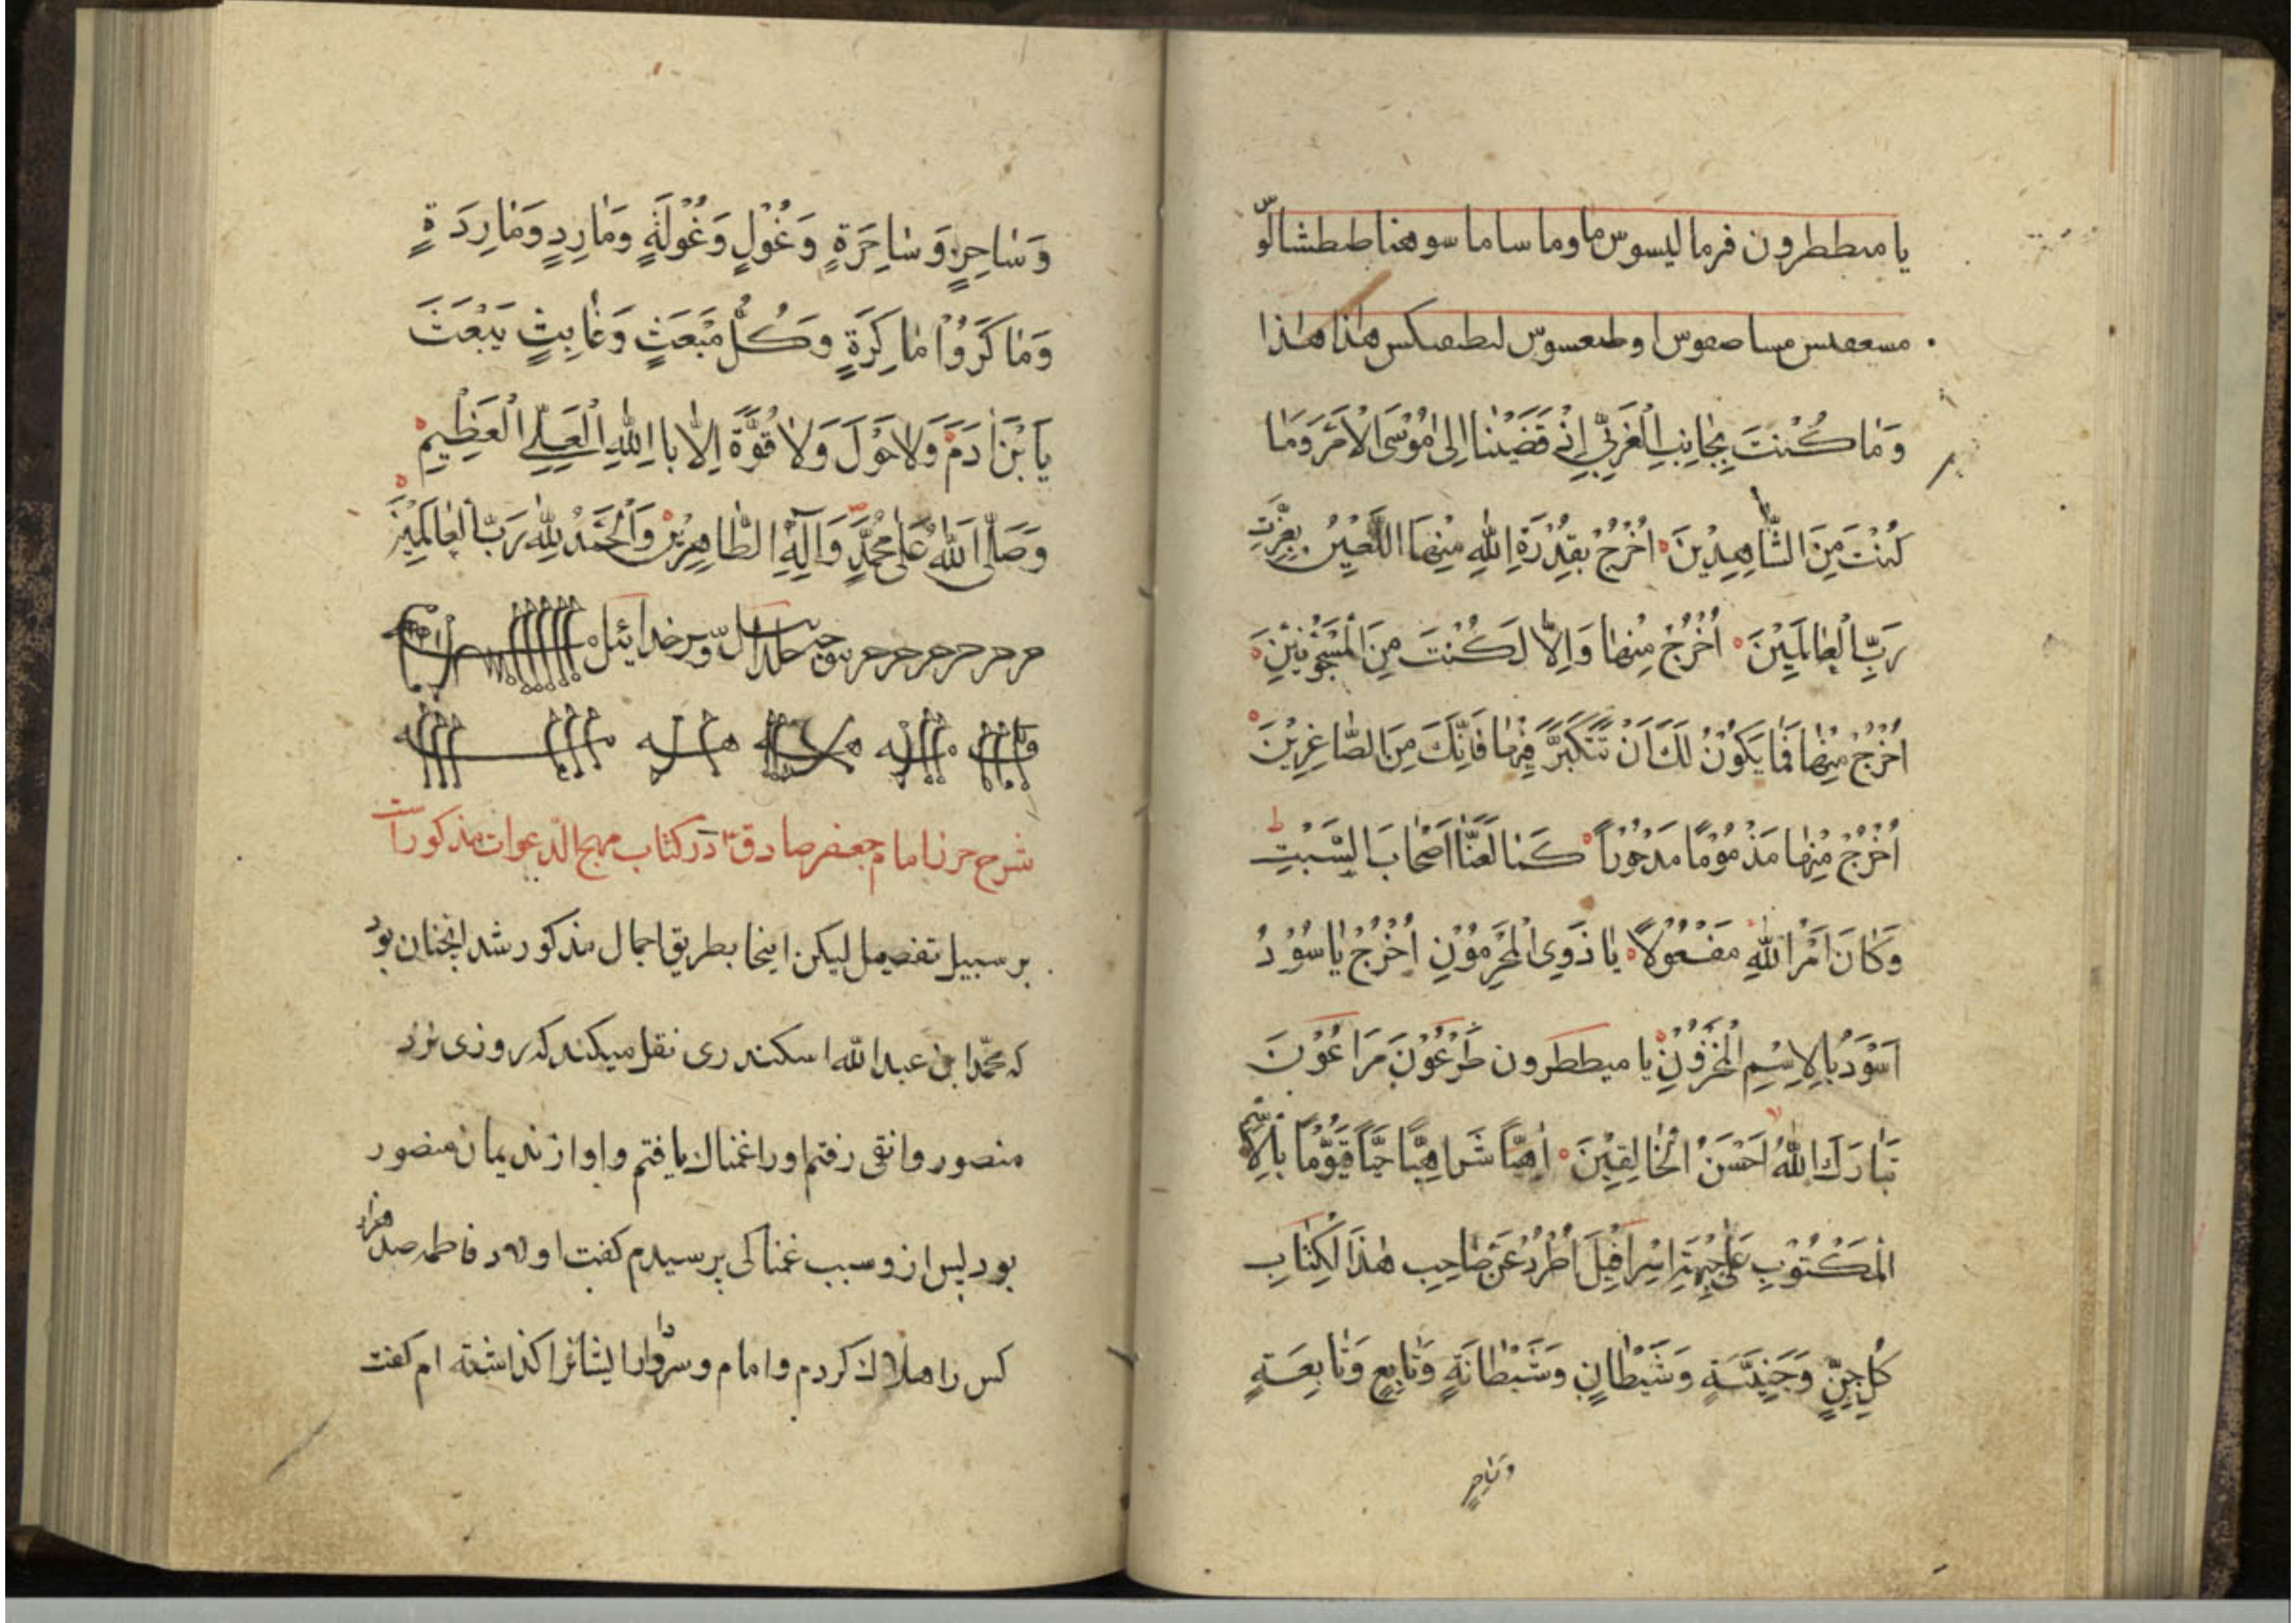 يا ميططرون فرما ليسوس ما وما ساما سوهنا طبطشالوّ
هذا هذا
وَمٰا كُنْتَ بِجٰانِبِ الْغَرْبِيِّ اِذْ قَضَيْنٰا اِلىٰ مُوْسَى الْاَمْرَ وَمٰا
كُنْتَ مِنَ الشّٰاهِدِيْنَ اُخْرُجْ بِقُدْرَةِ اللّٰهِ مِنْهٰا اللَّعِيْنُ بِعِزَّتِ
رَبِّ الْعٰالَمِيْنَ اُخْرُجْ مِنْهٰا وَاِلّٰا لَكُنْتَ مِنَ الْمَسْجُوْنِيْنَ
اُخْرُجْ مِنْهٰا فَمٰا يَكُوْنُ لَكَ اَنْ تَتَكَبَّرَ فِيْهٰا فَاِنَّكَ مِنَ الصّٰاغِرِيْنَ
اُخْرُجْ مِنْهٰا مَذْمُوْمًا مَدْحُوْرًا كَمٰا لَعَنّٰا اَصْحٰابَ السَّبْتِ
وَكٰانَ اَمْرُ اللّٰهِ مَفْعُوْلًا يٰا ذَوِى الْمَحْرَمُوْنِ اُخْرُجْ يٰا سُوْرُ
اَسْوَدُ بِالْاِسْمِ الْمَخْزُوْنِ يا ميططرون طَرْعُوْنَ مَرَاعُوْنَ
تَبٰارَكَ اللّٰهُ اَحْسَنُ الْخٰالِقِيْنَ اَهِيًّا شَراهِيًّا حَيًّا قَيُّوْمًا بِالْاِسْمِ
الْمَكْتُوْبِ عَلىٰ جِبْهَةِ اِسْرٰافِيْلَ اُطْرُدْ عَنْ صٰاحِبِ هٰذَا الْكِتٰابِ
كُلِّ جِنٍّ وَجَنِيَّةٍ وَشَيْطٰانٍ وَشَيْطٰانَةٍ وَتٰابِعٍ وَتٰابِعَةٍ
وَسٰاحِرٍ
وَسٰاحِرٍ وَسٰاحِرَةٍ وَغُوْلٍ وَغُوْلَةٍ وَمٰارِدٍ وَمٰارِدَةٍ
وَمٰا كَرَوْا مٰا كِرَةٍ وَكُلِّ مَبْعَثٍ وَعٰابِثٍ يَبْعَثَ
يَا بْنَ اٰدَمَ وَلٰا حَوْلَ وَلٰا قُوَّةَ اِلّٰا بِااللّٰهِ الْعَلِيِّ الْعَظِيْمِ
وَصَلَّى اللّٰهُ عَلىٰ مُحَمَّدٍ وَآلِهِ الطّٰاهِرِيْنَ وَالْحَمْدُ لِلّٰهِ رَبِّ الْعٰالَمِيْنَ
شرح حرز امام جعفر صادقؑ در كتاب مهج الدّعوات مذكور است
بر سبيل تفصيل ليكن اينجا بطريق اجمال مذكور شد انچنان بود
كه محمّد ابن عبدالله اسكندرى نقل ميكند كه روزى نزد
منصور وانقى رفتم او را غمناك يافتم و او از نديمان منصور
بود پس ازو سبب غمناكى پرسيدم كفت اولاد فاطمه صد هزار
كس را هلاك كردم و امام و سردار ايشانرا كذاشته ام كفت